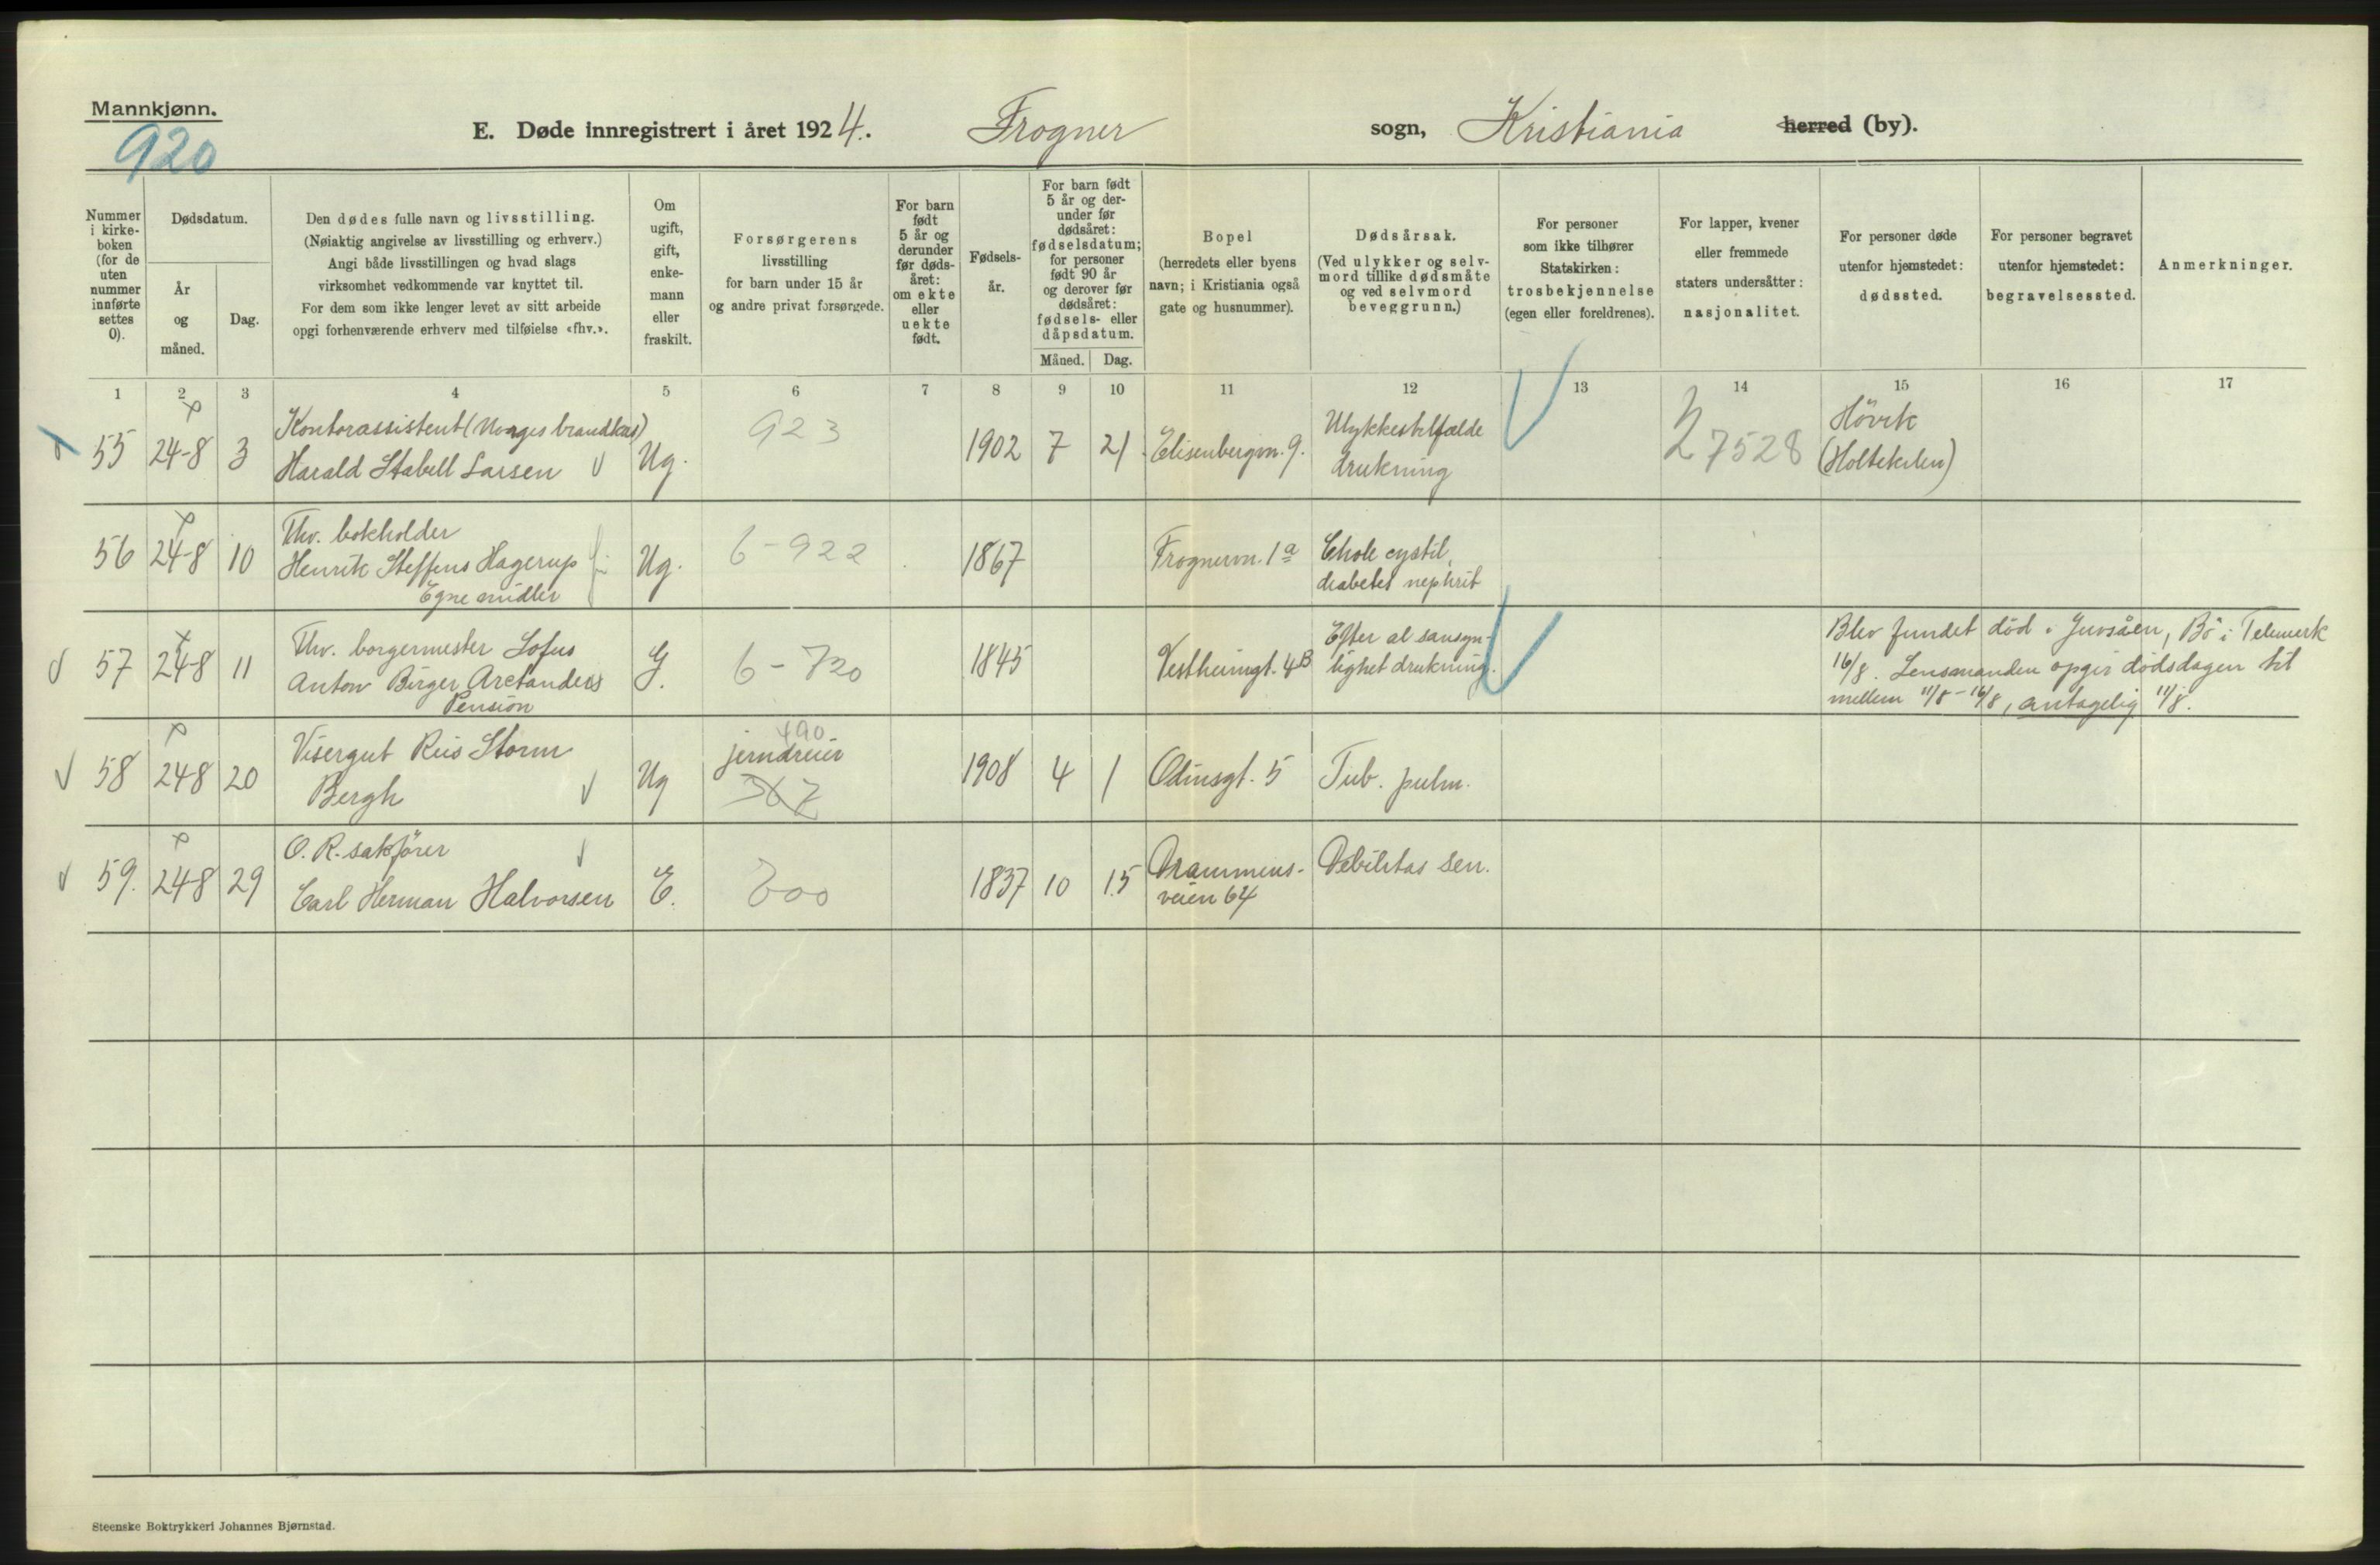 Mannkjønn.
920
E. Døde innregistrert i året 1924. Frogner sogn, Kristiania herred (by).
Nummer i kirke-boken (for de uten nummer innførte settes 0).
Dødsdatum.
År og måned.
Dag.
Den dødes fulle navn og livsstilling.
(Nøiaktig angivelse av livsstilling og erhverv.)
Angi både livsstillingen og hvad slags
virksomhet vedkommende var knyttet til.
For dem som ikke lenger levet av sitt arbeide
opgi forhenværende erhverv med tilføielse «fhv.».
Om ugift, gift, enke-mann eller fraskilt.
Forsørgerens
livsstilling
for barn under 15 år
og andre privat forsørgede.
For barn født 5 år og derunder før døds-året: om ekte eller uekte født.
Fødsels-år.
For barn født 5 år og der-under før dødsåret: fødselsdatum; for personer født 90 år og derover før dødsåret: fødsels- eller dåpsdatum.
Måned. Dag.
Bopel
(herredets eller byens
navn; i Kristiania også
gate og husnummer).
Dødsårsak.
(Ved ulykker og selv-
mord tillike dødsmåte
og ved selvmord
beveggrunn.)
For personer
som ikke tilhører
Statskirken:
trosbekjennelse
(egen eller foreldrenes).
For lapper, kvener
eller fremmede
staters undersåtter:
nasjonalitet.
For personer døde
utenfor hjemstedet:
dødssted.
For personer begravet
utenfor hjemstedet:
begravelsessted.
Anmerkninger.
1 2 3 4 5 6 7 8 9 10 11 12 13 14 15 16 17
Kontorassistent (Norges brandkas)
55 24-8 3 Harald Stabell Larsen Ug. 923 1902 7 21 Elisenbergvn. 9. Ulykkestilfælde
drukning
27528
Hövik
(Holtekilen)
Fhv. bokholder
56 24-8 10 Henrik Steffens Hagerup Ug. 6-922 1867 Frognervn. 1a Chole cystit,
diabetes nephrit
Egne midler
Fhv. borgermester Sofus
57 24-8 11 Anton Birger Arctanders G. 6-720 1845 Vestheimgt. 4B Efter al sansyn-
lighet drukning.
Pension
Blev fundet död i Juvsåen, Bö i Telemark
16/8. Lensmanden opgir dödsdagen til
mellem 11/8-16/8, antagelig 11/8.
Visergut Reis Storm
58 24-8 20 Bergh Ug 490
jerndreier
1908 4 1 Odinsgt. 5 Tub. pulm.
O. R. sakförer
59. 24-8 29 Carl Herman Halvorsen E. 700 1837 10 15 Drammens-
veien 64
Debilitas sen.
Steenske Boktrykkeri Johannes Bjørnstad.